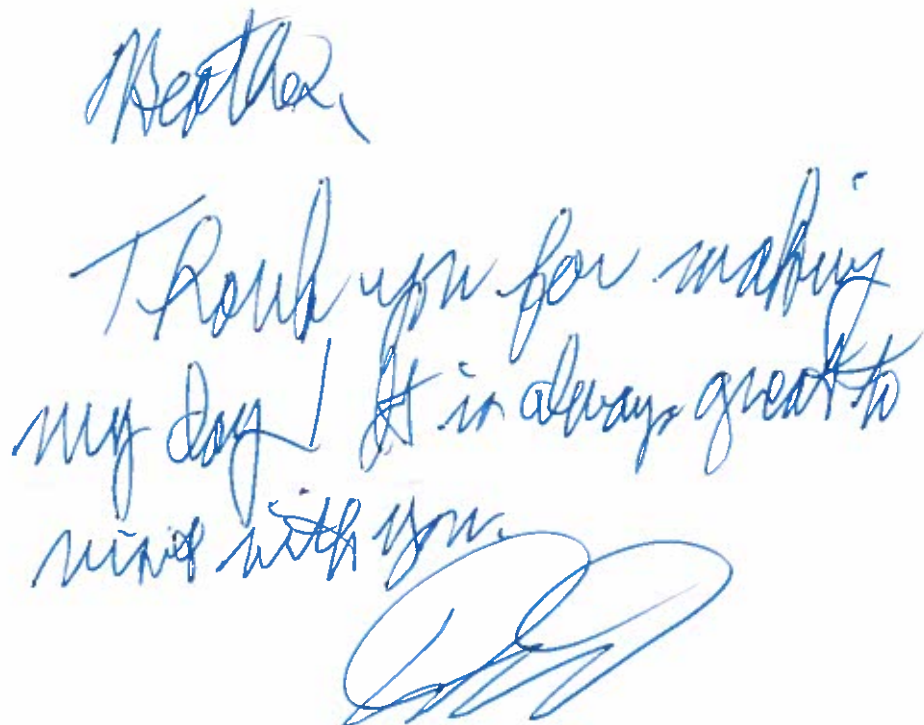 Bertha,
Thank you for making
my day! It is always great to
visit with you.